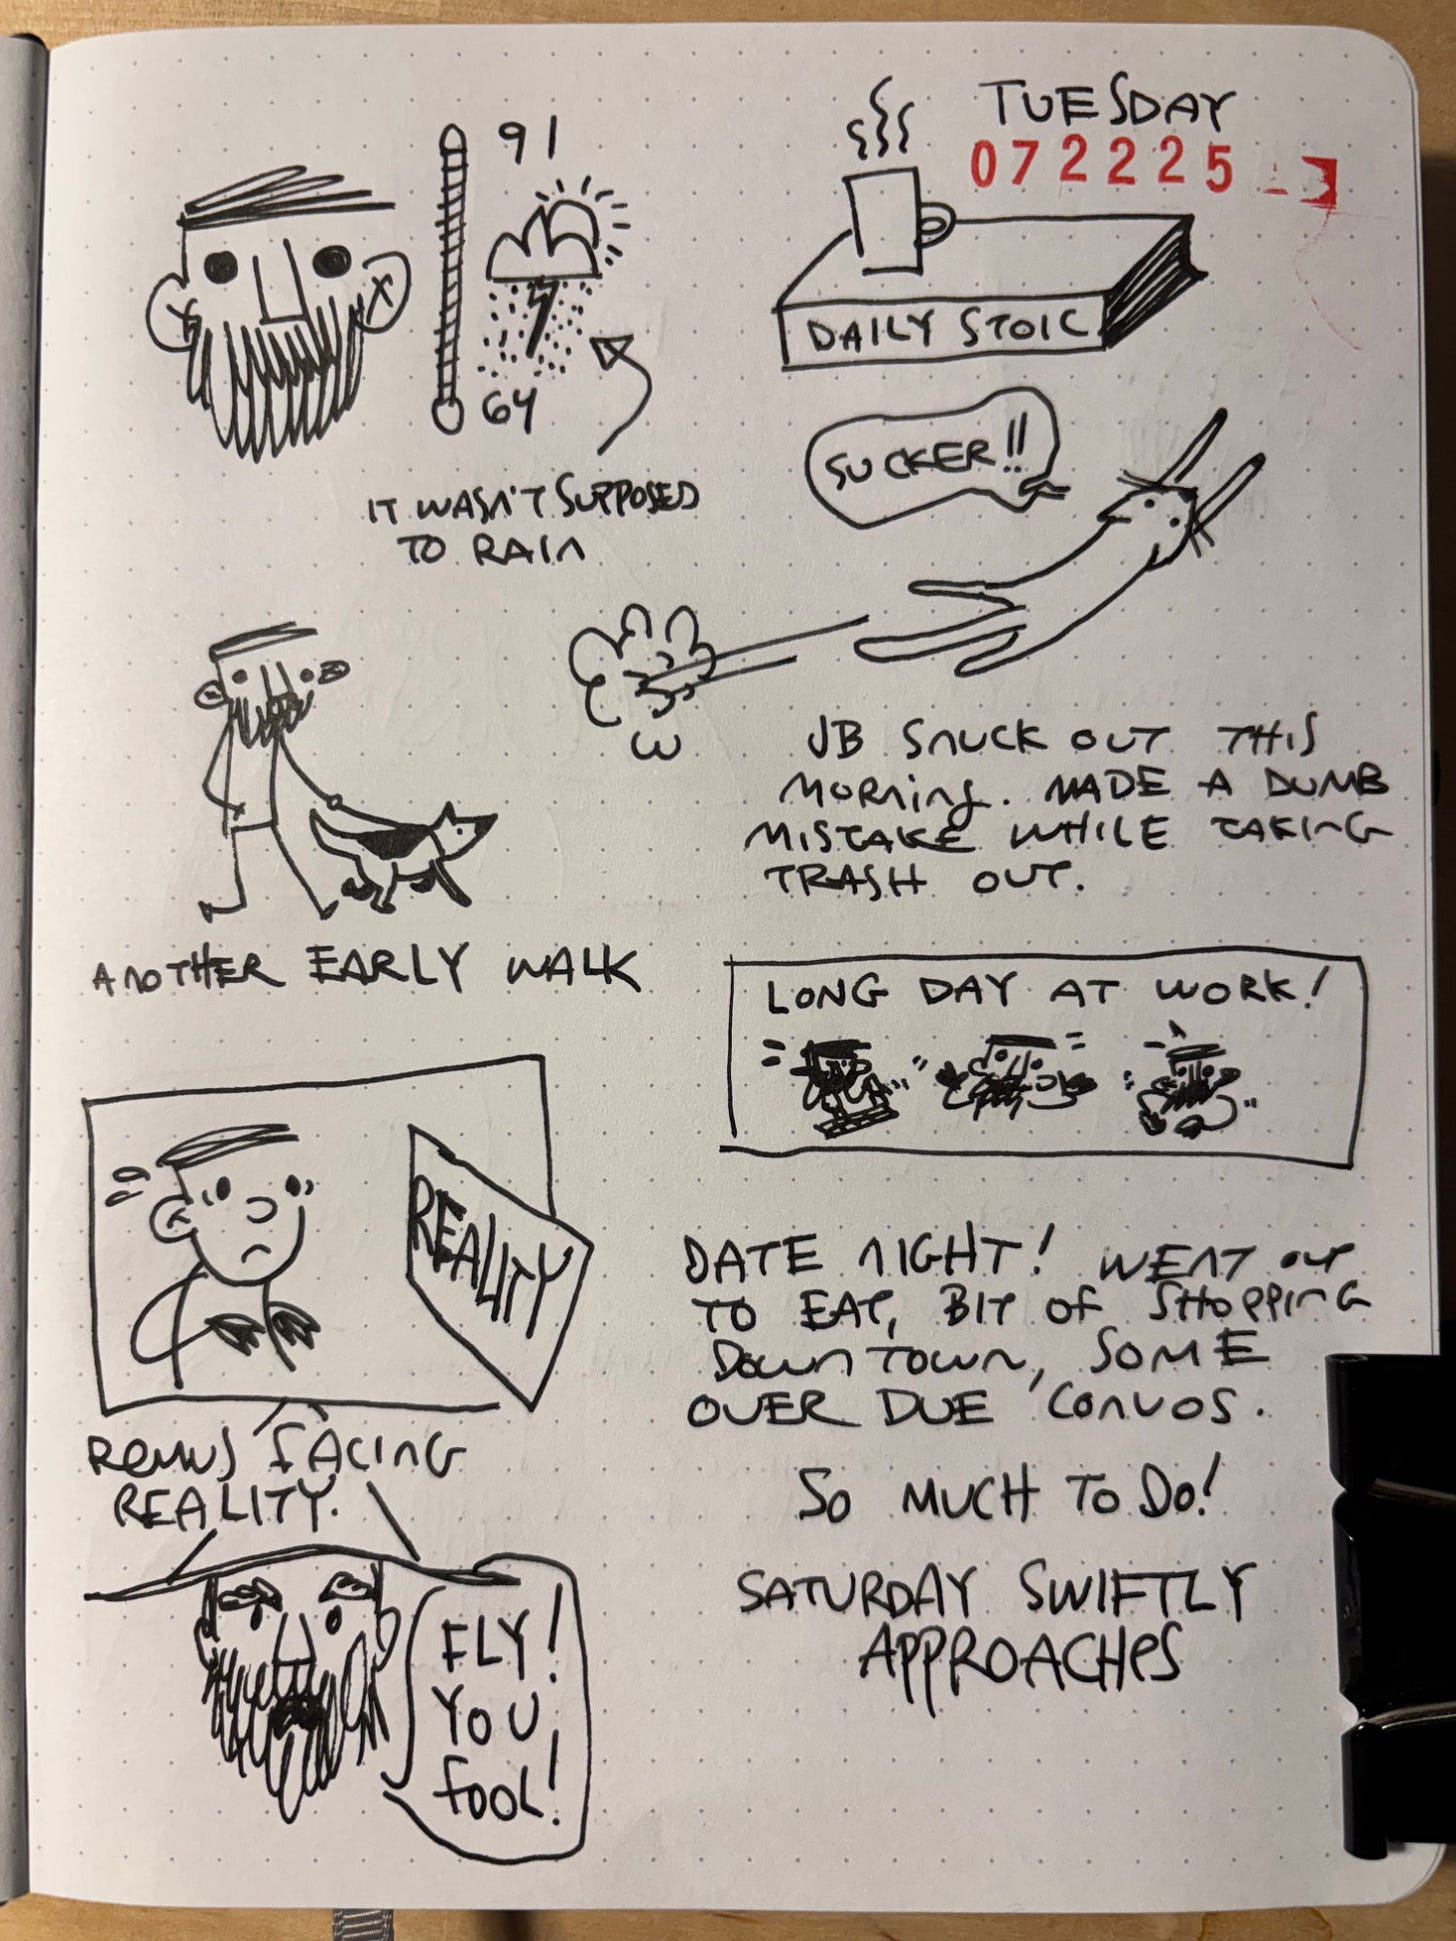 TUESDAY
072225
91
64
IT WASN'T SUPPOSED
TO RAIN
DAILY STOIC
SUCKER!!
JB SNUCK OUT THIS
MORNING. MADE A DUMB
MISTAKE WHILE TAKING
TRASH OUT.
ANOTHER EARLY WALK
LONG DAY AT WORK!
REALITY
REMUS FACING
REALITY.
FLY!
YOU
FOOL!
DATE NIGHT! WENT OUT
TO EAT, BIT OF SHOPPING
DOWNTOWN, SOME
OVER DUE CONVOS.
SO MUCH TO DO!
SATURDAY SWIFTLY
APPROACHES